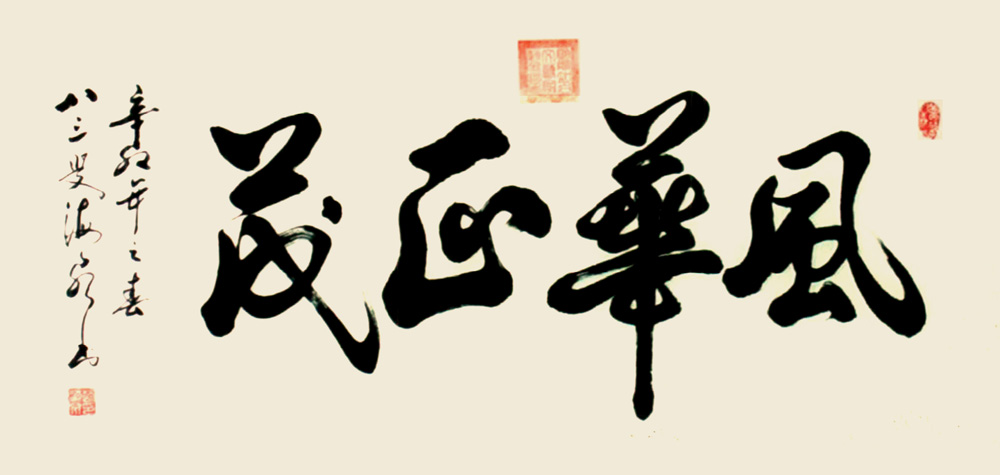 風華正茂
辛卯年之春
八三叟海